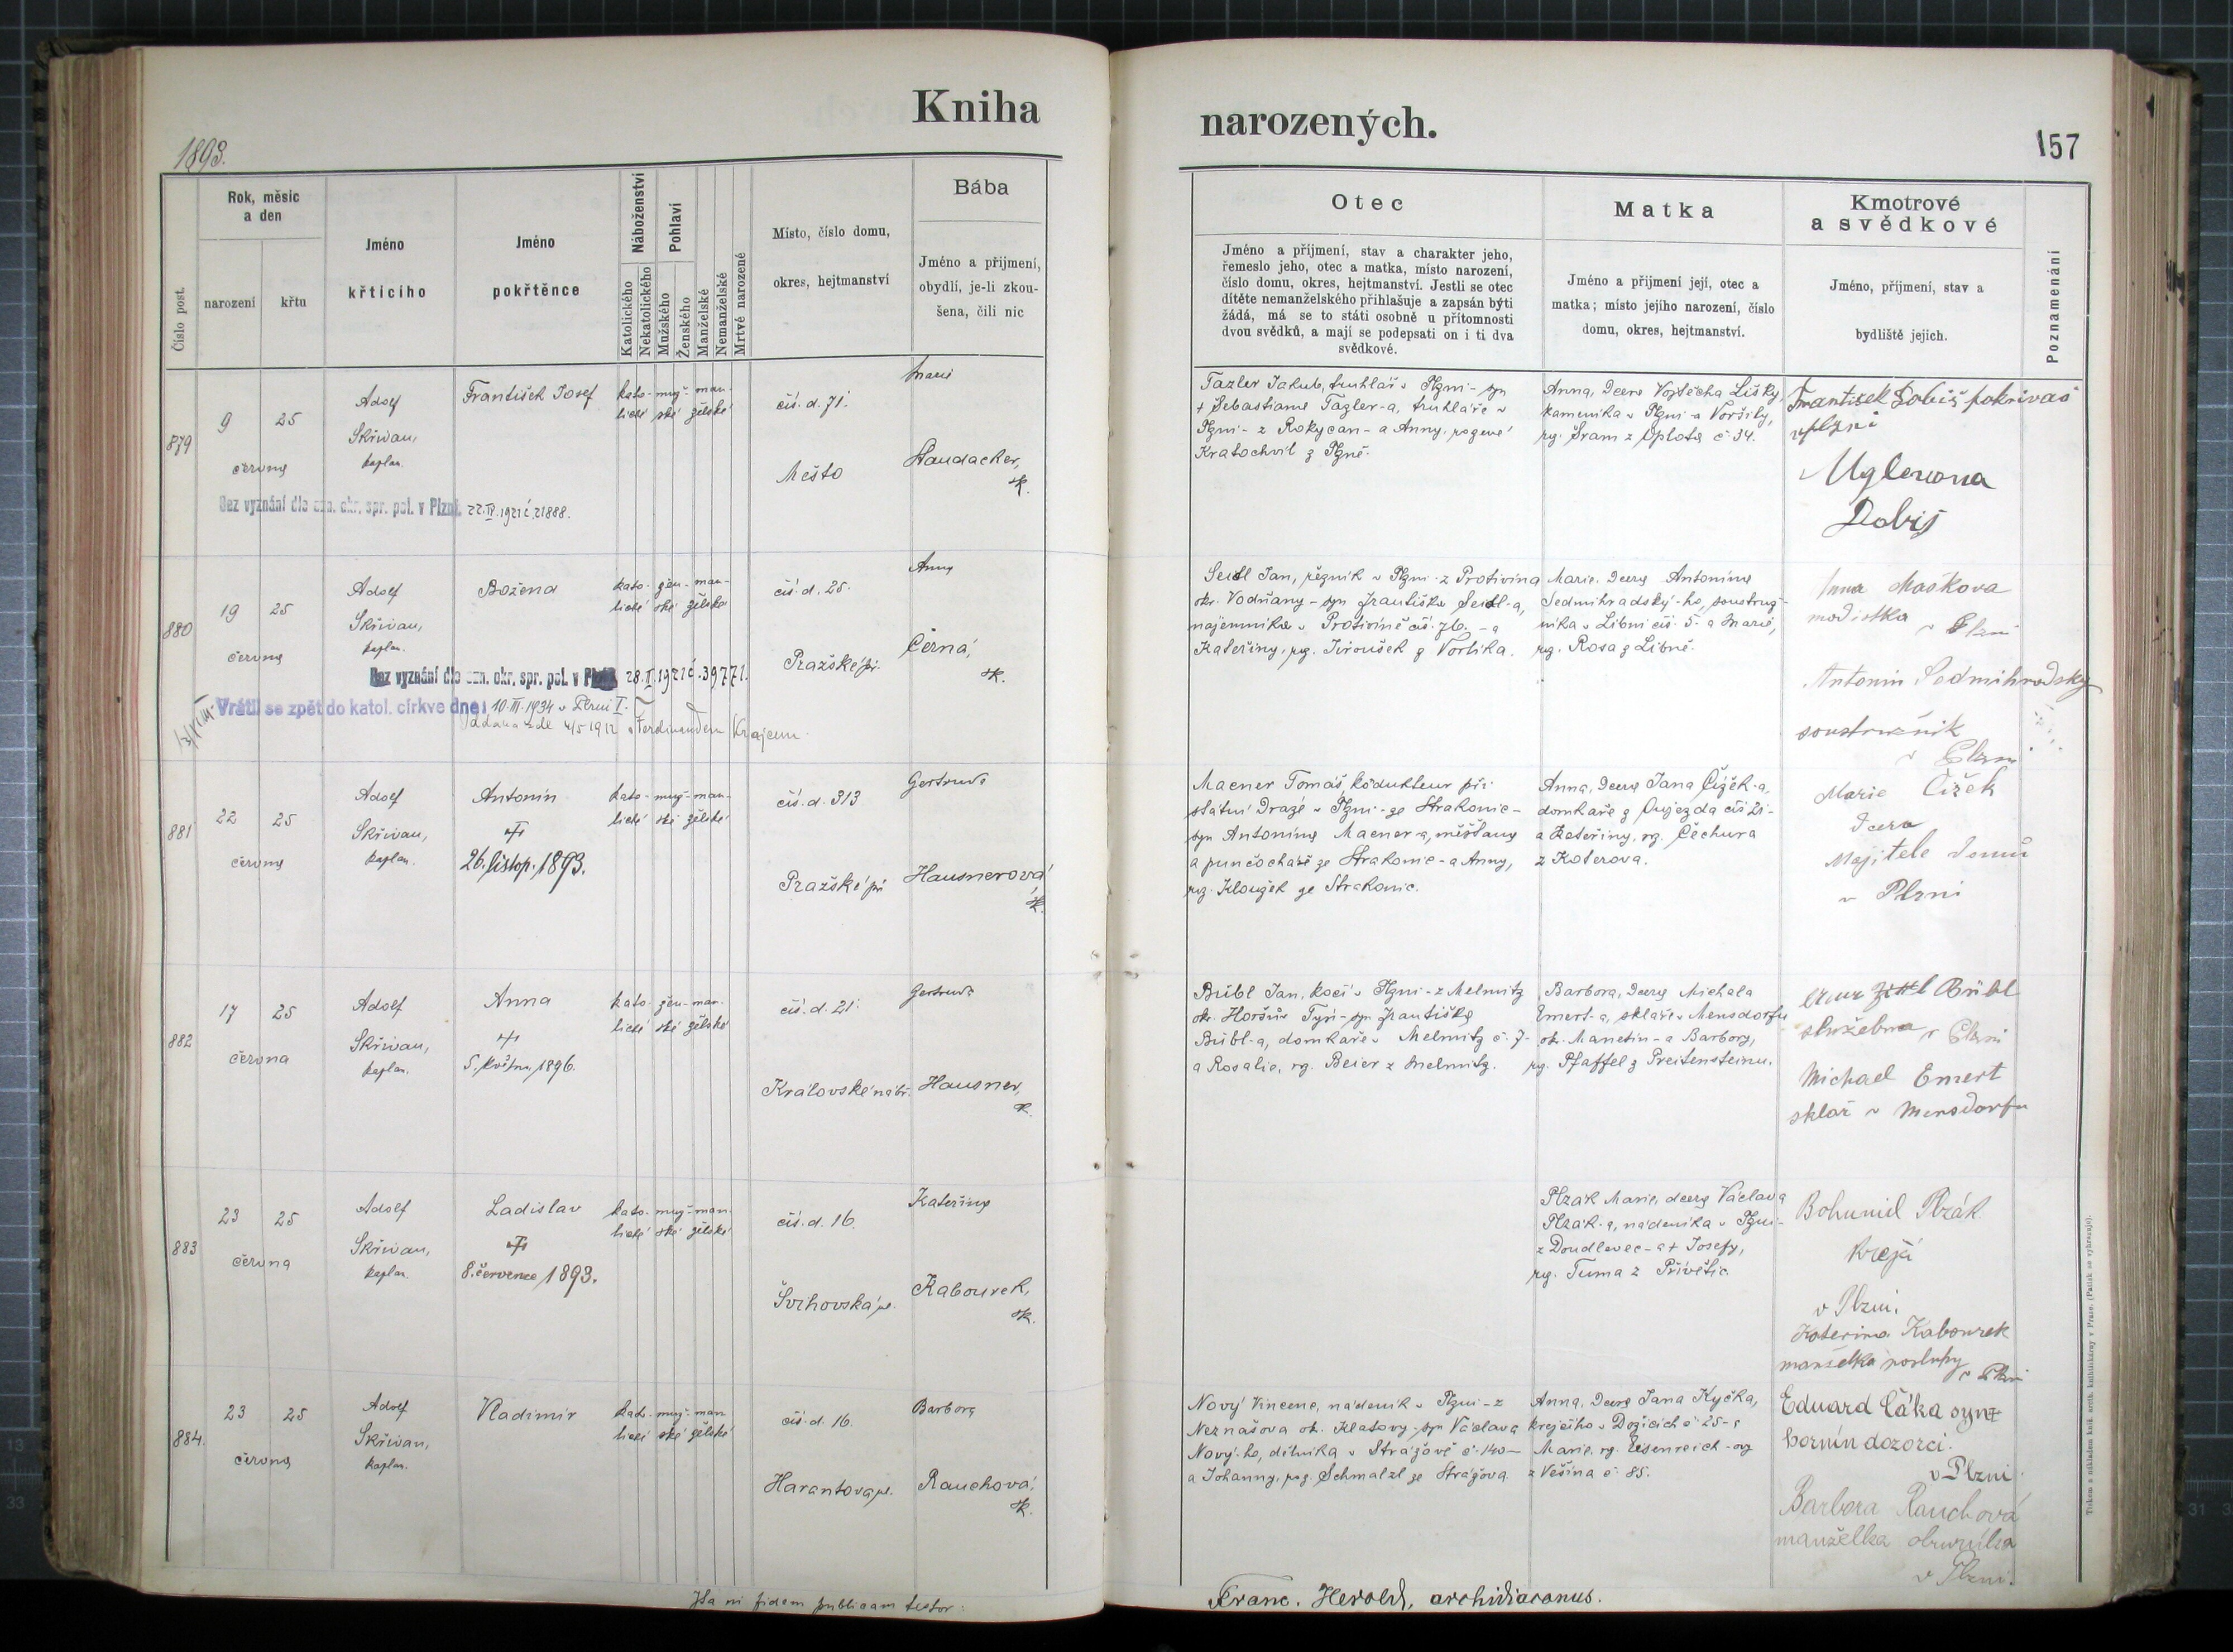 Kniha
narozených.
1893.
157
Číslo post.
Rok, měsíc
a den
narození
křtu
Jméno
křticího
Jméno
pokřtěnce
Náboženství
Katolického
Nekatolického
Pohlaví
Mužského
Ženského
Manželské
Nemanželské
Mrtvé narozené
Místo, číslo domu,
okres, hejtmanství
Bába
Jméno a příjmení,
obydlí, je-li zkou-
šena, čili nic
Otec
Jméno a příjmení, stav a charakter jeho,
řemeslo jeho, otec a matka, místo narození,
číslo domu, okres, hejtmanství. Jestli se otec
dítěte nemanželského přihlašuje a zapsán býti
žádá, má se to státi osobně u přítomnosti
dvou svědků, a mají se podepsati on i ti dva
svědkové.
Matka
Jméno a příjmení její, otec a
matka; místo jejího narození, číslo
domu, okres, hejtmanství.
Kmotrové
a svědkové
Jméno, příjmení, stav a
bydliště jejich.
Poznamenání
879
9
25
června
Adolf
Skřivan,
kaplan.
František Josef
kato- muž- man-
lické ské želské
čís. d. 71.
Město
Marie
Haudacher,
zk.
Bez vyznání dle ozn. okr. spr. pol. v Plzni. 22.IV.1921 č. 21888.
Tazler Jakub, truhlář v Plzni - syn
+ Šebastiana Tazler-a, truhláře v
Plzni - z Rokycan - a Anny, rozené
Kratochvil z Plzně.
Anna, dcera Vojtěcha Lišky,
kameníka v Plzni a Voršily,
roz. Šram z Oplota č 34.
František Dobiš pokrivač
v plzni
Uglerova
Dobiš
880
19
25
června
Adolf
Skřivan,
kaplan.
Božena
kato- žen- man-
lické ské želské
čís. d. 25.
Pražské př.
Anna
Černá,
zk.
Bez vyznání dle ozn. okr. spr. pol. v Plzni 28.I.1921 č. 39771.
Vrátil se zpět do katol. církve dne: 10.III.1934 v Plzni I.
Oddána zde 4/5 1912 s Ferdinandem Krajcem
Seidl Jan, řezník v Plzni - z Protivína
okr. Vodňany - syn Františka Seidl-a,
nájemníka v Protivíně čís. 76. - a
Kateřiny, roz. Jiroušek z Vorlíka.
Marie, dcera Antonína
Sedmihradský-ho, soustruž-
níka v Libni čís. 5. a Marie,
roz. Rosa z Libně.
Anna Maškova
modistka
v Plzni
Antonin Sedmihradsky
soustružník
v Plzni
881
22
25
června
Adolf
Skřivan,
kaplan.
Antonín
26. listop. 1893.
kato- muž- man-
lické ské želské
čís. d. 313
Pražské př.
Gertruda
Hausnerová
zk.
Macner Tomáš, kondukteur při
státní dráze v Plzni - ze Strakonic -
syn Antonína Macner-a, měšťana
a punčocháře ze Strakonic - a Anny,
roz. Kloužek ze Strakonic.
Anna, dcera Jana Čížek-a,
domkaře z Oujezda čís 21 -
a Kateřiny, roz. Čechura
z Koterova.
Marie Čížek
dcera
Majitele domů
v Plzni
882
17
25
června
Adolf
Skřivan,
kaplan.
Anna
5. května 1896.
kato- žen- man-
lické ské želské
čís. d. 21.
Královské nábř.
Gertruda
Hausner,
zk.
Bübl Jan, kočí v Plzni - z Melmitz
ok. Horšův Týn - syn Františka
Bübl-a, domkaře v Melmitz č. 7 -
a Rosalie, roz. Beier z Melmitz.
Barbora, dcera Michala
Emert-a, skláře v Mensdorfu
ok. Manetín - a Barbory,
roz. Pfaffel z Preitensteinu.
Bübl
služebna v Plzni
Michael Emert
sklář v Mensdorfu
883
23
25
června
Adolf
Skřivan,
kaplan.
Ladislav
8. července 1893.
kato- muž- man-
lické ské želské
čís. d. 16.
Švihovská ul.
Kateřina
Kabourek,
zk.
Plzák Marie, dcera Václava
Plzák-a, nádeníka v Plzni -
z Doudlevec - a + Josefy,
roz. Tuma z Přívětic.
Bohumil Plzák
Krejčí
v Plzni.
Katerina Kabourek
manželka posluhy v Plzni
884.
23
25
června
Adolf
Skřivan,
kaplan.
Vladimír
kato- muž- man
lické ské želské
čís. d. 16.
Harantova ul.
Barbora
Rauchová,
zk.
Nový Vincenc, nádeník v Plzni - z
Neznašova ok. Klatovy - syn Václava
Nový-ho, dělníka v Strážově č. 140 -
a Johanny, roz. Schmalzl ze Strážova
Anna, dcera Jana Kyčka,
krejčího v Dožicích č 25 - a
Marie, roz. Eisenreich-ov
z Vešína č 85.
Eduard Čáka syn
horním dozorci.
v Plzni
Barbora Rauchová
manželka obuvníka
v Plzni.
Ita in fidem publicam testor:
Franc. Herold, archidiaconus.
Tiskem a nákladem knih. arcib. knihtiskárny v Praze. (Patisk se vyhrazuje).